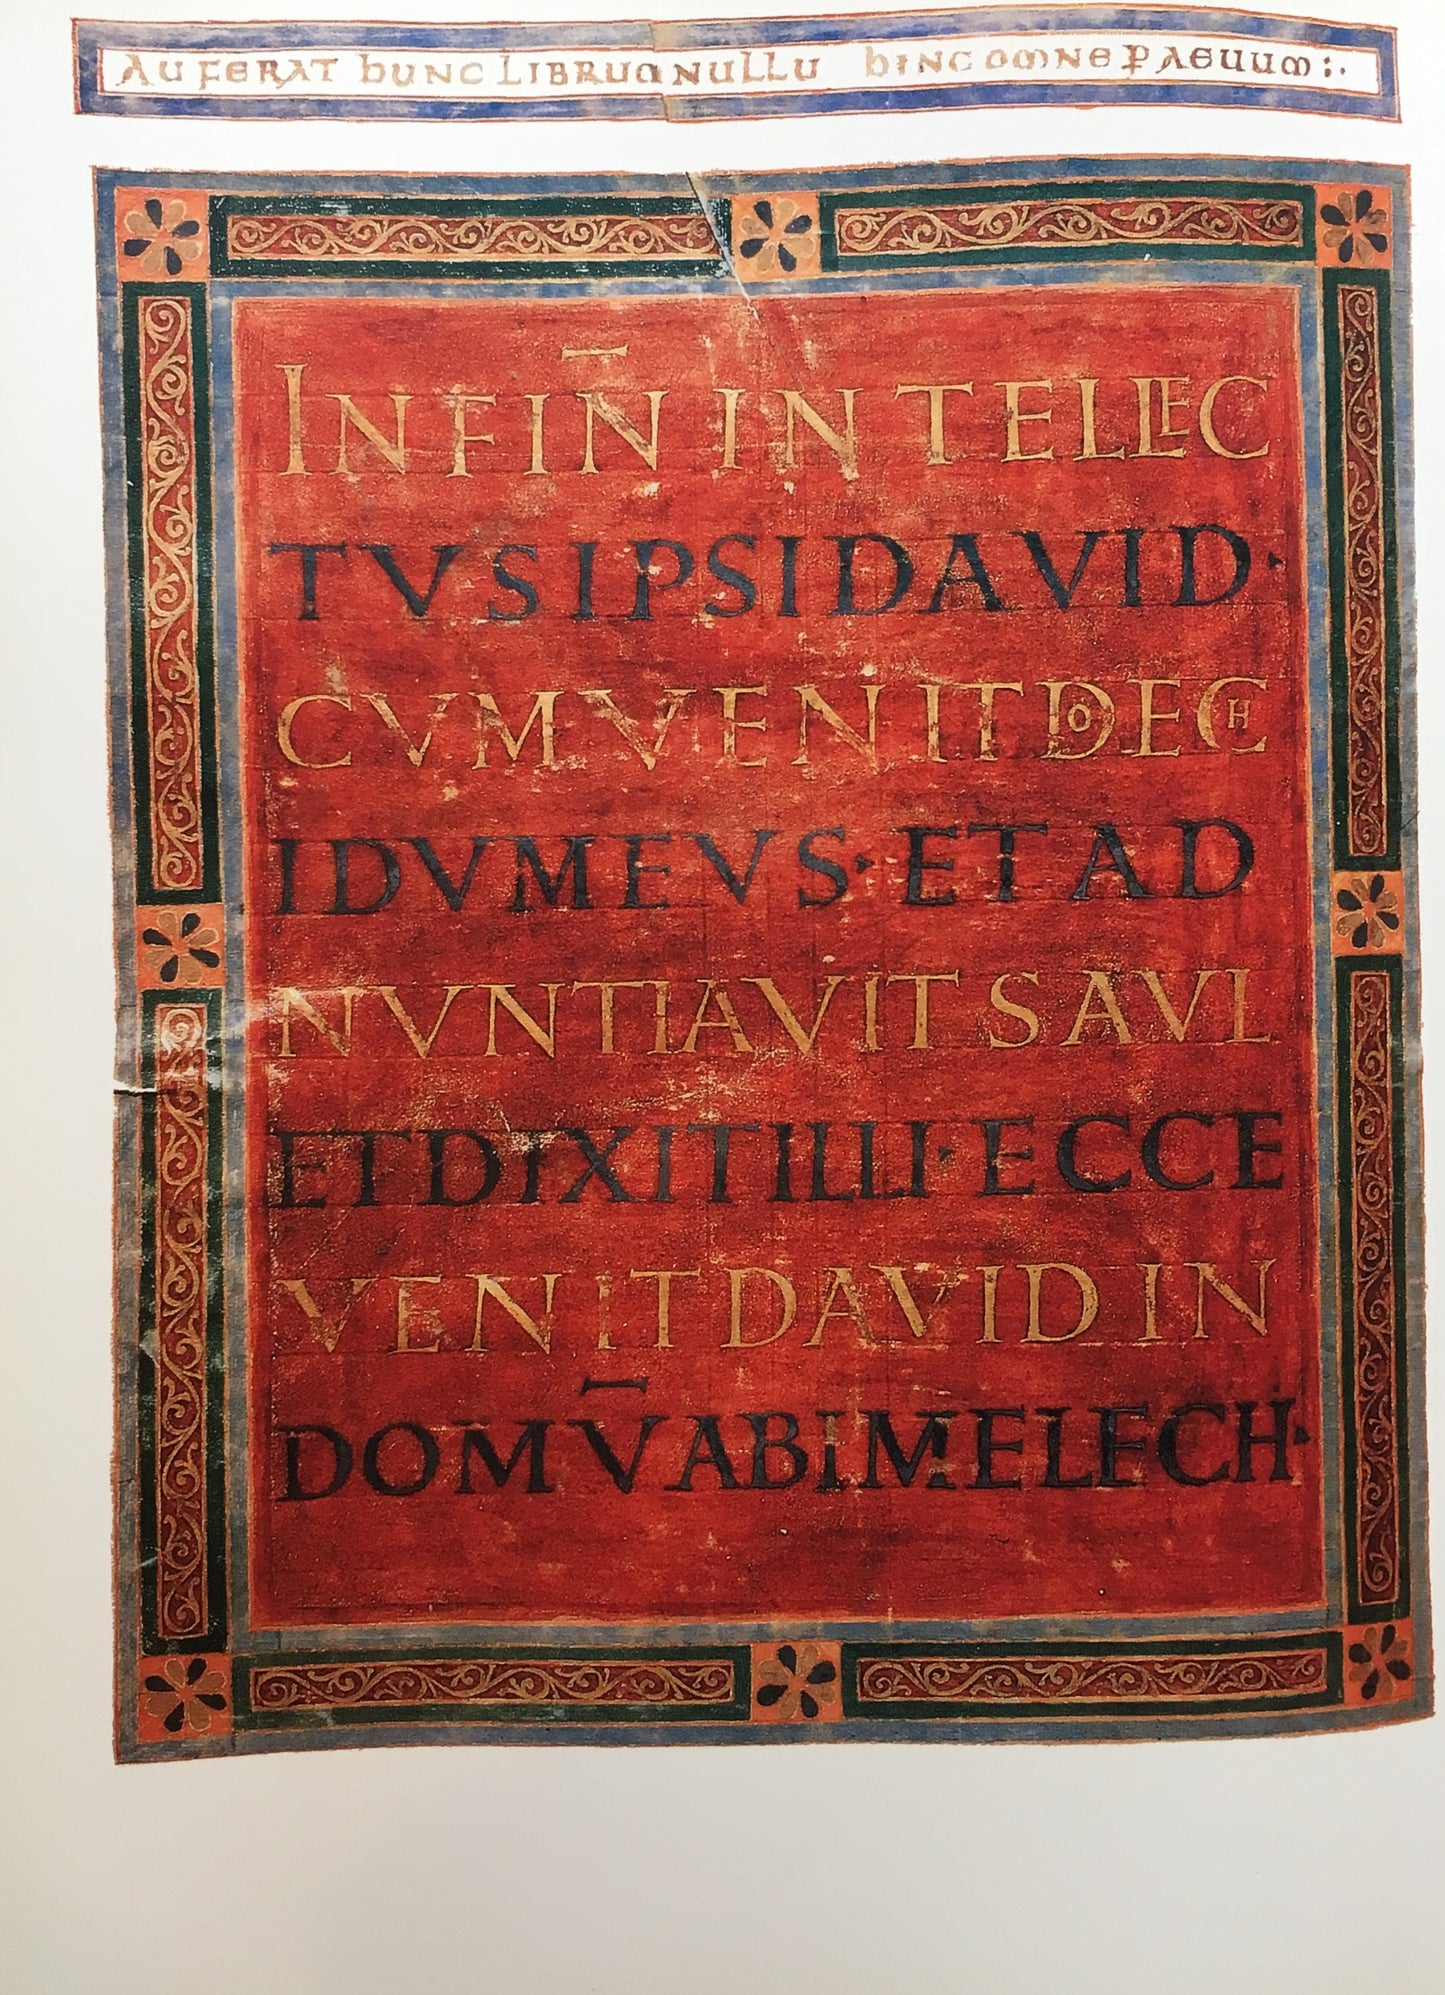 AUFERAT hUNC LIBRUM NULLU hINC OMNE ꝐAEUUM:·
IN FIN̄ IN TELLEC
TVS IPSI DAVID·
CVM VENIT DOECH
IDVMEVS· ET AD
NVNTIAVIT SAVL
ET DIXIT ILLI· ECCE
VENIT DAVID IN
DOMV̄ ABIMELECH·